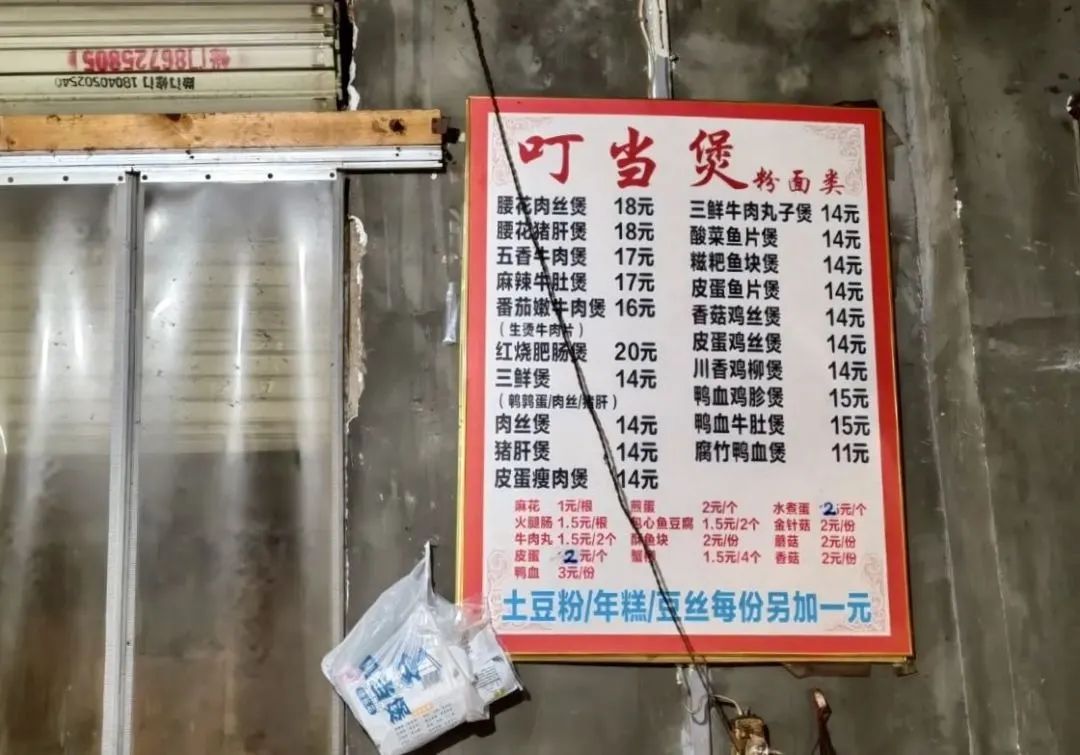 修门186725805
修门修门 18040502540
叮当煲 粉面类
腰花肉丝煲 18元
腰花猪肝煲 18元
五香牛肉煲 17元
麻辣牛肚煲 17元
番茄嫩牛肉煲 16元
（生烫牛肉片）
红烧肥肠煲 20元
三鲜煲 14元
（鹌鹑蛋/肉丝/猪肝）
肉丝煲 14元
猪肝煲 14元
皮蛋瘦肉煲 14元
三鲜牛肉丸子煲 14元
酸菜鱼片煲 14元
糍粑鱼块煲 14元
皮蛋鱼片煲 14元
香菇鸡丝煲 14元
皮蛋鸡丝煲 14元
川香鸡柳煲 14元
鸭血鸡胗煲 15元
鸭血牛肚煲 15元
腐竹鸭血煲 11元
麻花 1元/根 煎蛋 2元/个 水煮蛋 2元/个
火腿肠 1.5元/根 包心鱼豆腐 1.5元/2个 金针菇 2元/份
牛肉丸 1.5元/2个 酥鱼块 2元/份 蘑菇 2元/份
皮蛋 2元/个 蟹柳 1.5元/4个 香菇 2元/份
鸭血 3元/份
土豆粉/年糕/豆丝每份另加一元